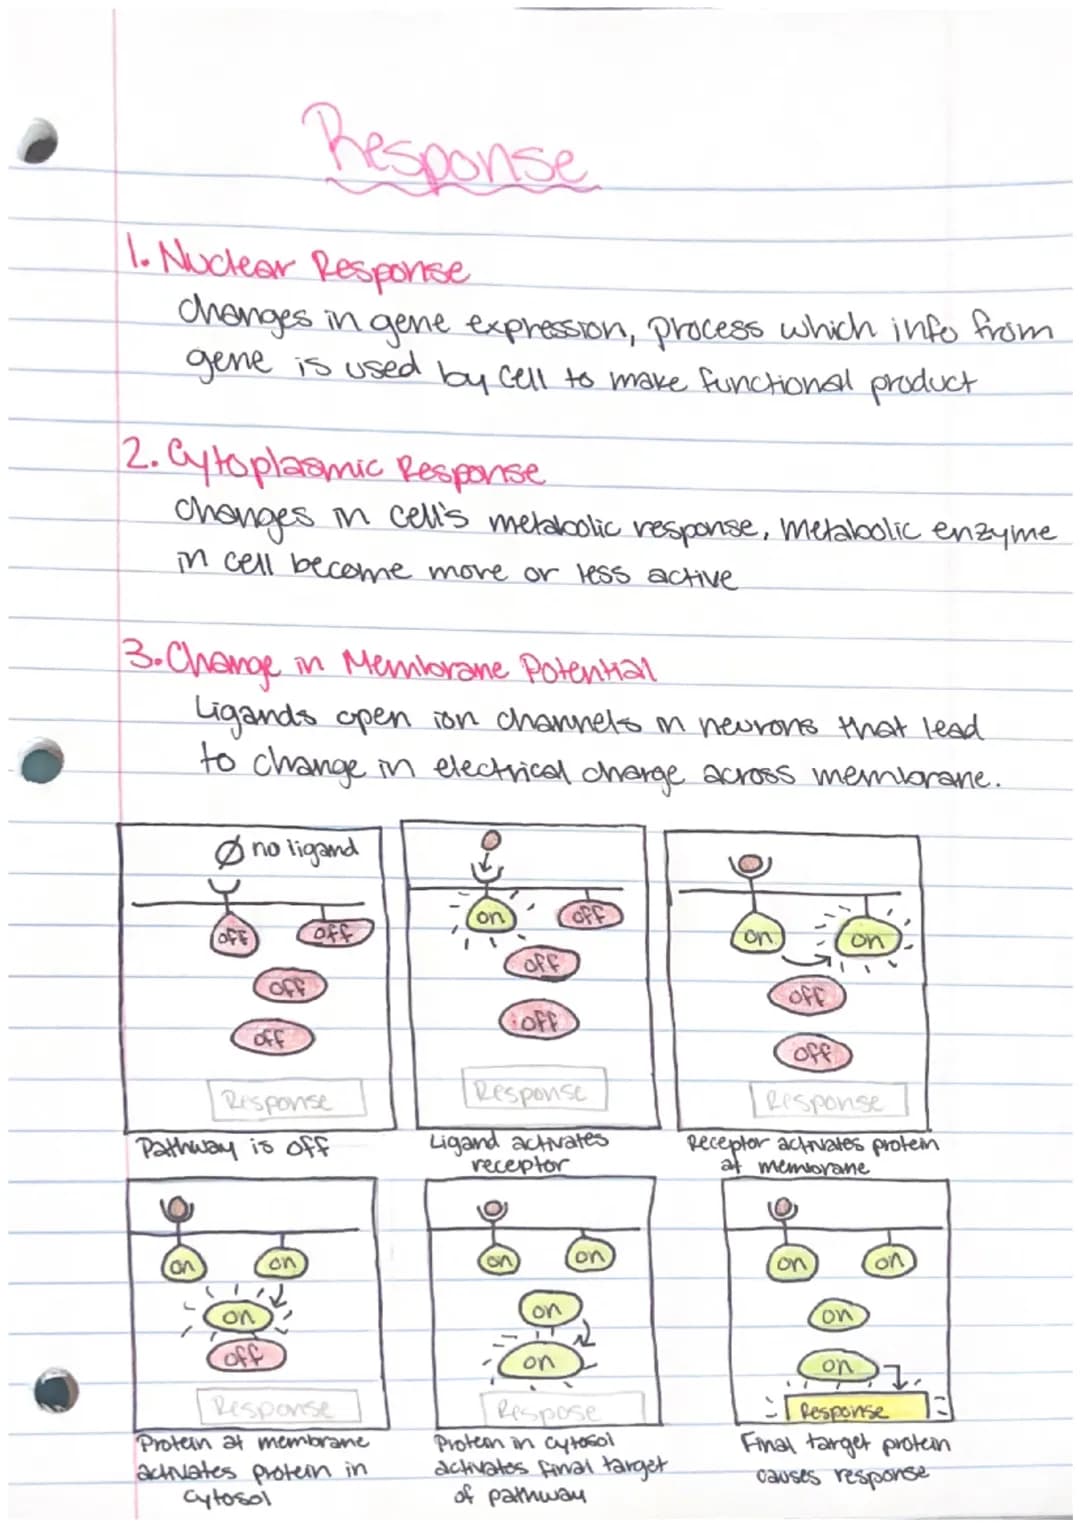 Response
1. Nuclear Response
changes in gene expression, process which info from
gene is used by cell to make functional product
2. Cytoplasmic Response
changes in cell's metabolic response, metabolic enzyme
in cell become more or less active
3. Change in Membrane Potential
Ligands open ion channels in neurons that lead
to change in electrical charge across membrane.
Ø no ligand
off
off
off
off
Response
Pathway is off
on
off
off
off
Response
Ligand activates
receptor
on
on
off
off
Response
Receptor activates protein
at membrane
on
on
on
off
Response
Protein at membrane
activates protein in
cytosol
on
on
on
on
Respose
Protein in cytosol
activates final target
of pathway
on
on
on
on
Response
Final target protein
causes response